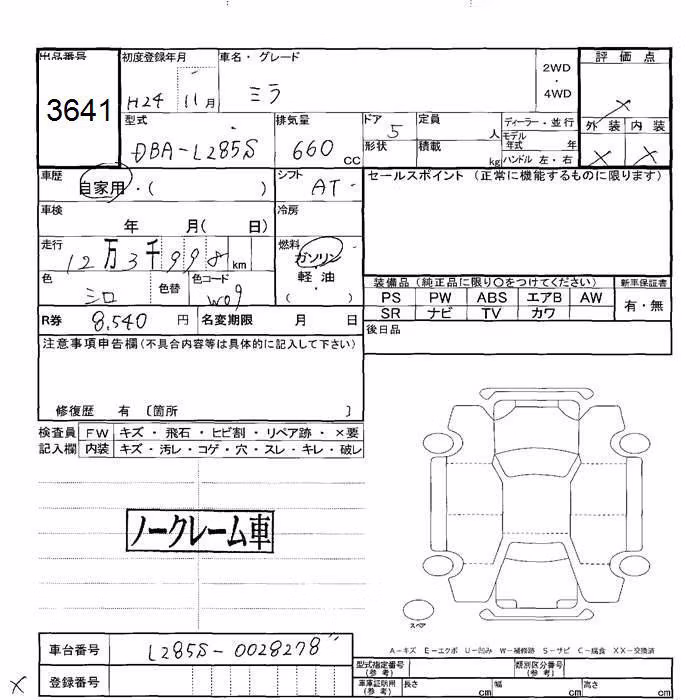 出品番号 初度登録年月 車名・グレード 2WD・4WD 評価点
3641 H24 11月 ミラ ×
型式 排気量 ドア 定員 ディーラー・並行 外装 内装
DBA-L285S 660cc 5 人 モデル年式 年 × ×
形状 積載 kg ハンドル 左・右
車歴 自家用・( ) シフト AT セールスポイント (正常に機能するものに限ります)
車検 年 月( 日) 冷房
走行 12万3千998km 燃料 ガソリン
軽・油
( )
色 色替 色コード W09
装備品 (純正品に限り○をつけてください) 新車保証書
PS PW ABS エアB AW 有・無
SR ナビ TV カワ
R券 8,540円 名変期限 月 日 後日品
注意事項申告欄(不具合内容等は具体的に記入して下さい)
修復歴 有 〔箇所 〕
検査員 FW キズ・飛石・ヒビ割・リペア跡・×要
記入欄 内装 キズ・汚レ・コゲ・穴・スレ・キレ・破レ
ノークレーム車
スペア
A-キズ E-エクボ U-凹み W-補修跡 S-サビ C-腐食 XX-交換済
車台番号 L285S-0028278
型式指定番号(参考) 類別区分番号(参考)
× 登録番号
車庫証明用(参考) 長さ cm 幅 cm 高さ cm